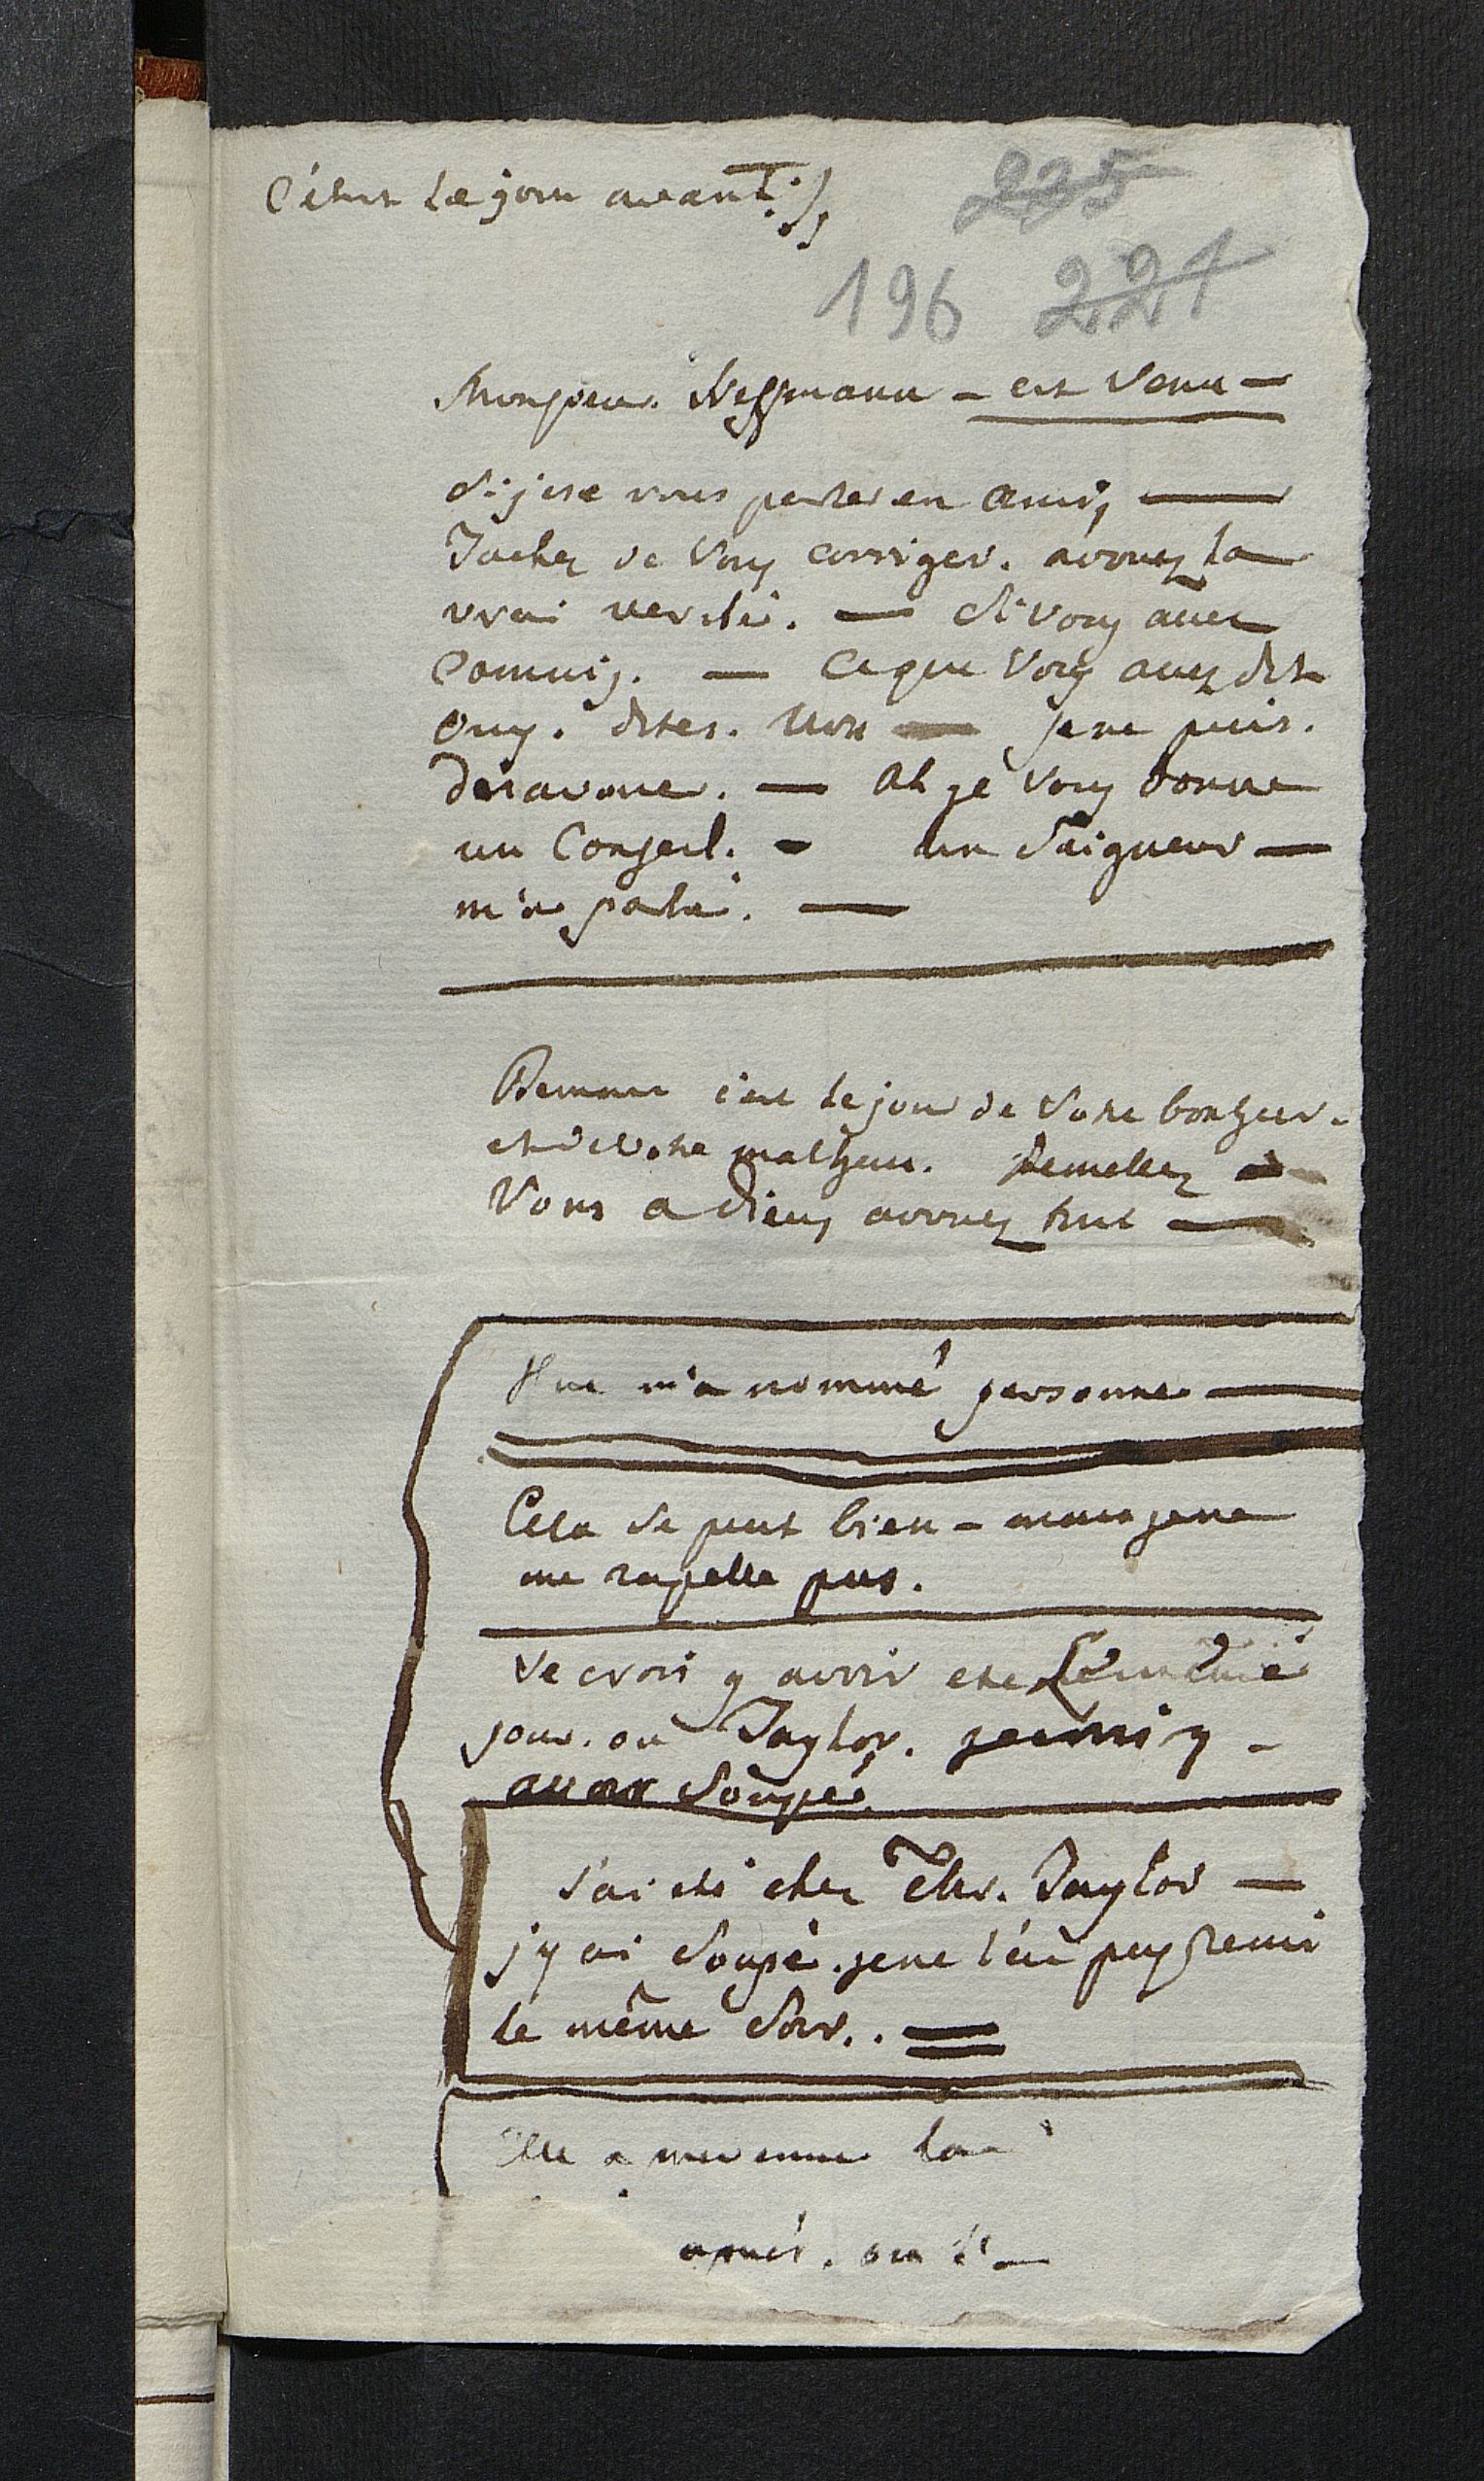 C'etoit le jour avant :/,
225
196 221
Monsieur. Nessmann - est Venu -
Si j'ose vous parler en ami, —
Tachez de Vous corriger. avouez la
vrai verité. — Si vous avez
Commis. — Ce que Vous avez dit
Ouy. dites. Non — je ne puis.
desavouer. — Ah je Vous donne
un Conseil. - un Seigneur —
m'a parlé. —
Demain c'est le jour de Votre bonheur.
et de Votre malheur. Remettez
Vous a Dieu, avouez tout —
Il ne m'a nommé personne —
Cela se peut bien - mais je ne
me rapelle pas.
Je crois y avoir eté Le même
jour. ou Taylor.
avoir Soupé.
J'ai eté chez Taylor —
j'y ai Soupé. je ne l'ai pas
le même Soir..
Elle a la
ou